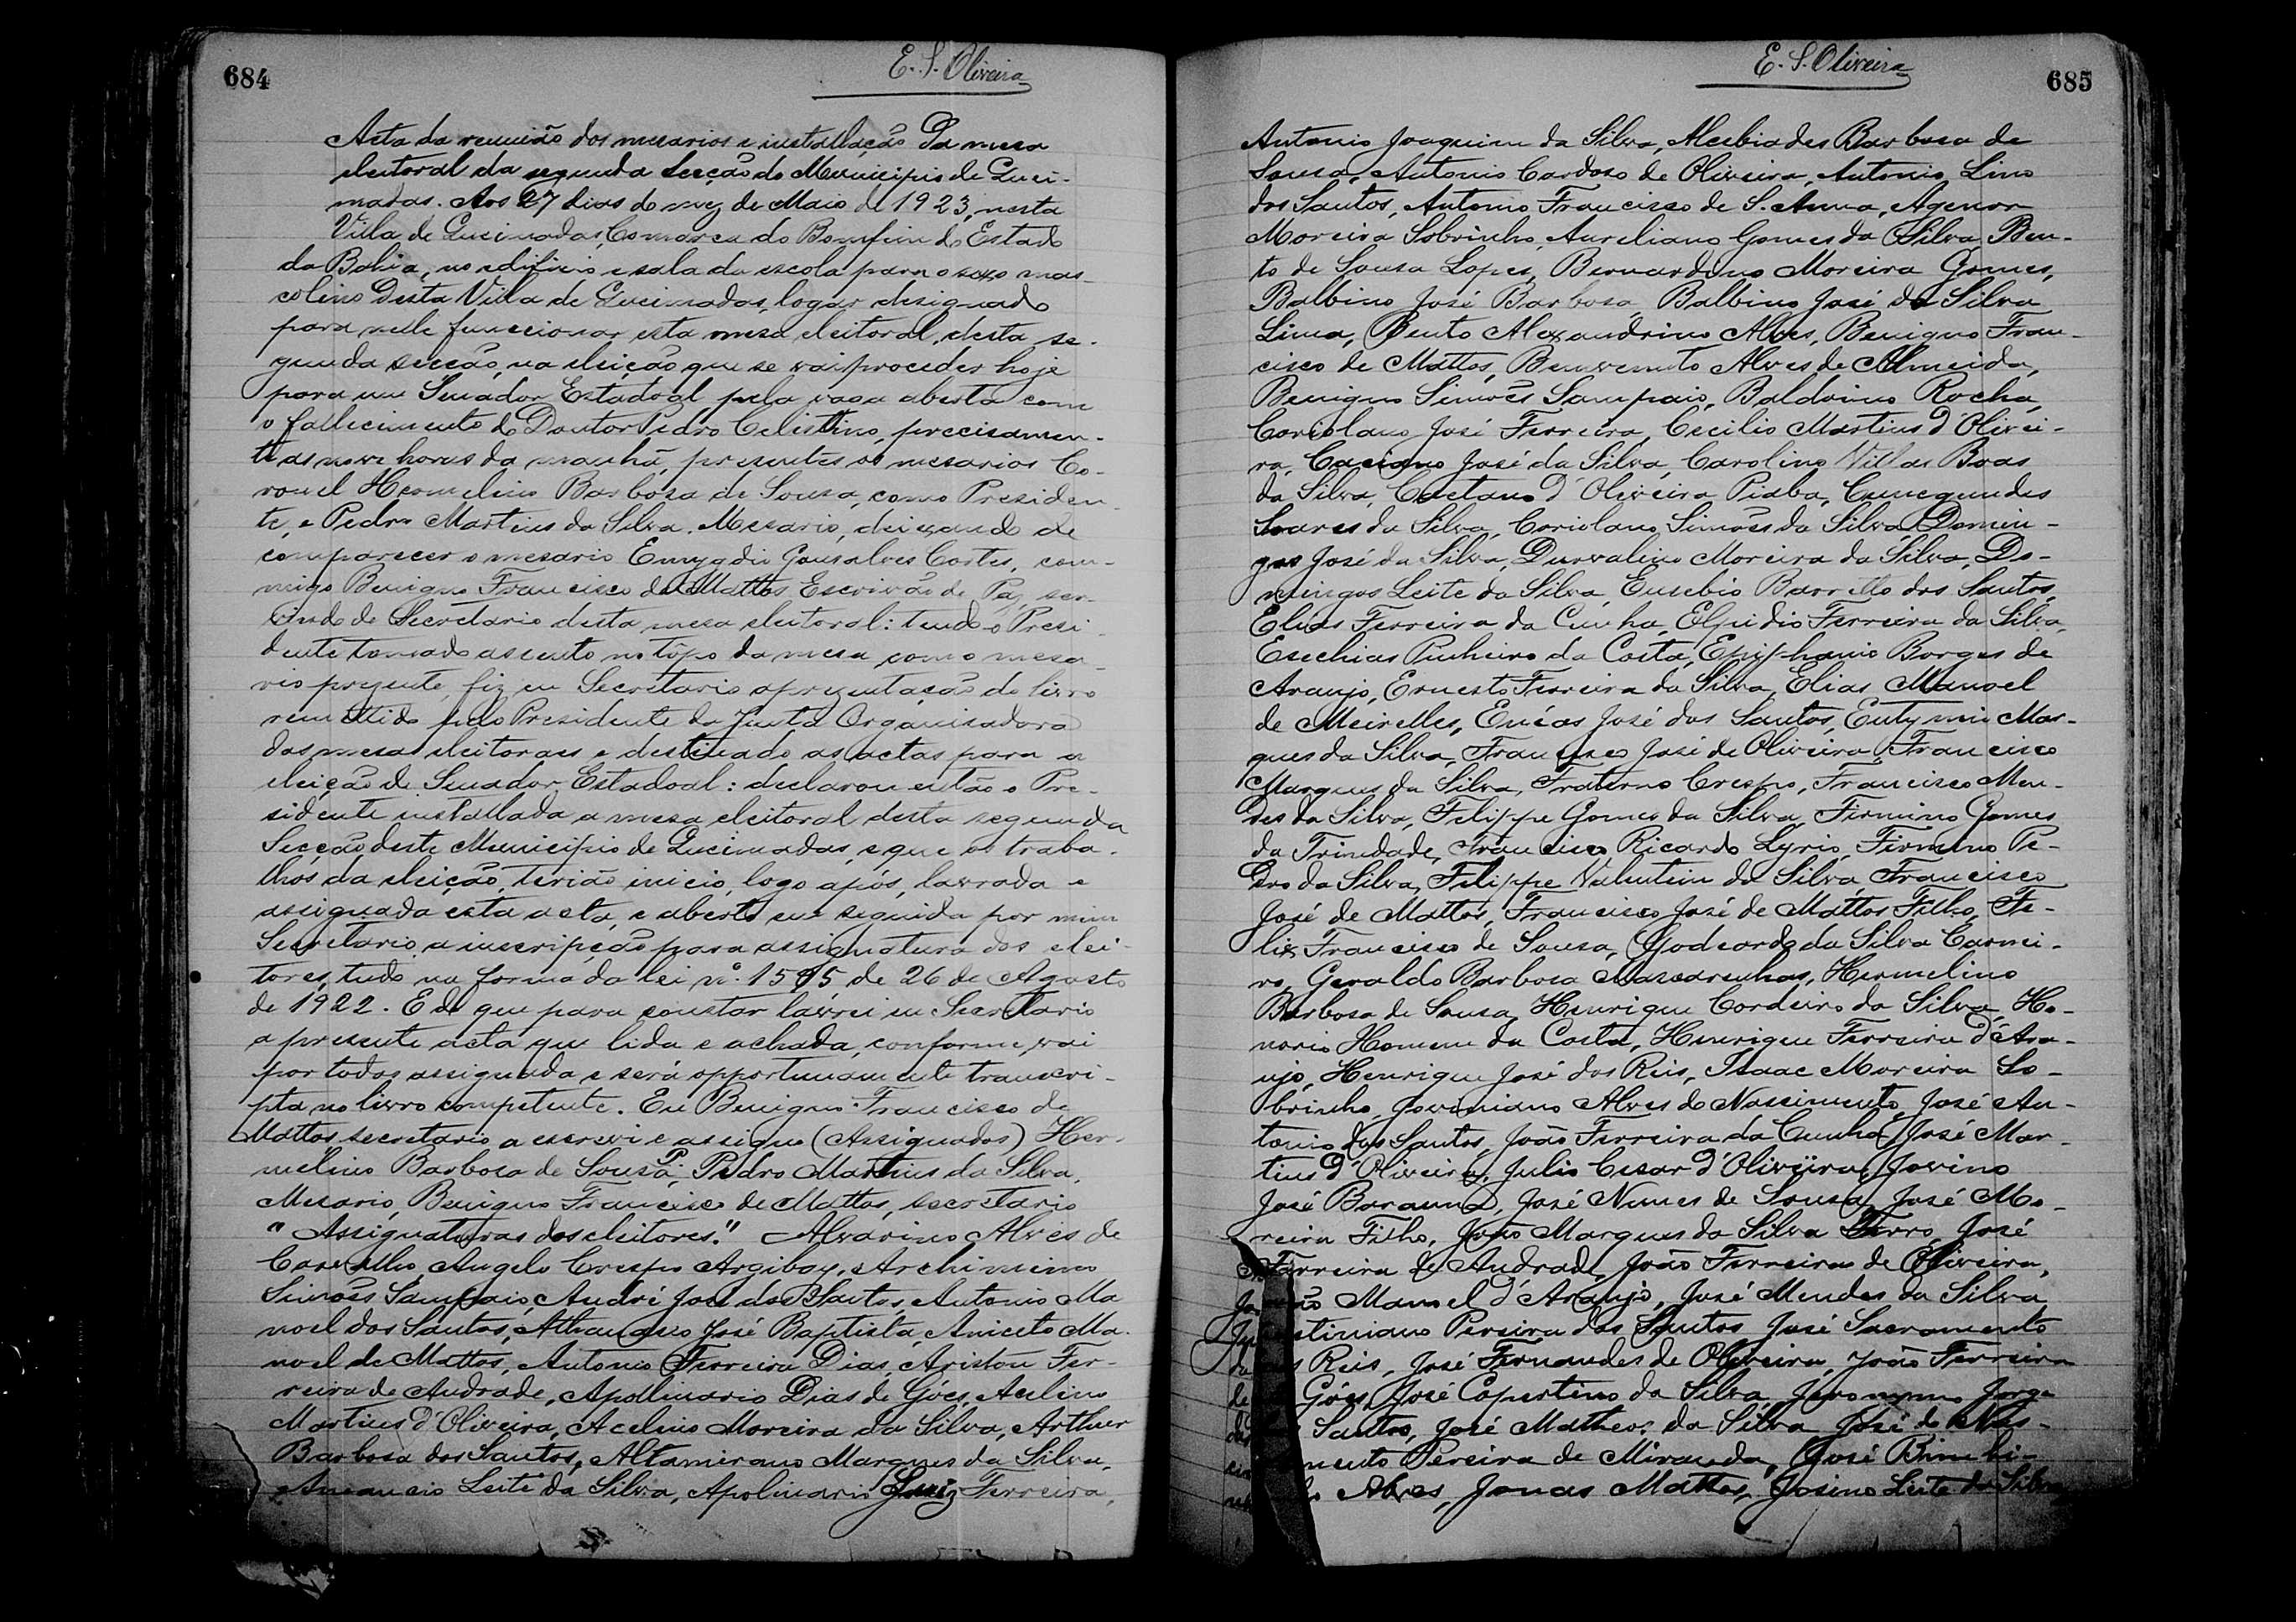 684
E. S. Oliveira
Acta da reunião dos mesarios e installação da mesa
eleitoral da segunda Secção do Municipio de Quei-
madas. Aos 27 dias do mez de Maio de 1923, nesta
Villa de Queimadas, Comarca do Bomfim do Estado
da Bahia, no edificio e sala da escola para o sexo mas-
colino desta Villa de Queimadas, logar designado
para nelle funccionar esta mesa eleitoral, desta se-
gunda secção, na eleição que se vai proceder hoje
para um Senador Estadoal pela vaga aberta com
o fallecimento do Doutor Pedro Celestino, precisamen-
te as nove horas da manhã, presentes os mesarios Co-
ronel Hermelino Barbosa de Sousa, como Presiden-
te, e Pedro Martins da Silva. Mesario, deixando de
comparecer o mesario Emygdio Gonsalves Cortes, com-
migo Benigno Francisco de Mattos Escrivão de Paz, ser-
vindo de Secretario desta mesa eleitoral: tendo o Presi-
dente tomado assento no tôpo da mesa, com o mesa-
rio presente, fiz eu Secretario apresentação do livro
remettido pelo Presidente da Junta Organisadora
das mesas eleitoraes e destinado as actas para a
eleição de Senador Estadoal: declarou então o Pre-
sidente installada a mesa eleitoral desta segunda
Secção deste Municipio de Queimadas, e que os traba-
lhos da eleição, terião inicio, logo após, lavrada e
assignada esta acta, e aberta em seguida por mim
Secretario a inscripção para assignatura dos elei-
tores, tudo na forma da lei nº. 1595 de 26 de Agosto
de 1922. E de que para constar lavrei eu Secretario
a presente acta que lida e achada, conforme, vai
por todos assignada e será opportunamente transcri-
pta no livro competente. Eu Benigno Francisco de
Mattos secretario a escrevi e assigno (Assignados) Her-
melino Barbosa de Sousa, P. Pedro Martins da Silva,
Mesario, Benigno Francisco de Mattos, secretario
"Assignaturas dos eleitores." Alvarino Alves de
Carvalho, Angelo Crespo Argibay, Archimimo
Simões Sampaio, André José dos Santos, Antonio Ma
noel dos Santos, Athanasio José Baptista, Aniceto Ma-
noel de Mattos, Antonio Ferreira Dias, Ariston Fer-
reira de Andrade, Apollinario Dias de Góes, Avelino
Martins d'Oliveira, Acelino Moreira da Silva, Arthur
Barbosa dos Santos, Altamirano Marques da Silva,
Amancio Leite da Silva, Apolinario Ferreira,
E. S. Oliveira
685
Antonio Joaquim da Silva, Alcebiades Barbosa de
Sousa, Antonio Cardoso de Oliveira, Antonio Lino
dos Santos, Antonio Francisco de S. Anna, Agenor
Moreira Sobrinho, Aureliano Gomes da Silva, Ben-
to de Sousa Lopes, Bernardino Moreira Gomes,
Balbino José Barbosa, Balbino José da Silva
Lima, Bento Alexandrino Alves, Benigno Fran-
cisco de Mattos, Benvenuto Alves de Almeida,
Benigno Simões Sampaio, Baldoino Rocha,
Coriolano José Ferreira, Cecilio Martins d'Olivei-
ra, Caciano José da Silva, Carolino Villas Boas
da Silva, Caetano d'Oliveira Piaba, Cunegundes
Soares da Silva, Coriolano Simões da Silva, Domin-
gos José da Silva, Durvalino Moreira da Silva, Do-
mingos Leite da Silva, Eusebio Barretto dos Santos,
Elias Ferreira da Cunha, Elpidio Ferreira da Silva,
Esechias Pinheiro da Costa, Epiphanio Borges de
Araujo, Ernesto Ferreira da Silva, Elias Manoel
de Meirelles, Enéas José dos Santos, Eutymio Mar-
ques da Silva, Francisco José de Oliveira, Francisco
Marques da Silva, Fraterno Crespo, Francisco Men-
des da Silva, Filippe Gomes da Silva, Firmino Gomes
da Trindade, Francisco Ricardo Lyrio, Firmino Pe-
dro da Silva, Filippe Valentim da Silva, Francisco
José de Mattos, Francisco José de Mattos Filho, Fe-
lix Francisco de Sousa, Godcardo da Silva Carnei-
ro, Geraldo Barbosa Mascarenhas, Hermelino
Barbosa de Sousa, Henrique Cordeiro da Silva, Ho-
norio Homem da Costa, Henrique Ferreira d'Ara-
ujo, Henrique José dos Reis, Isaac Moreira So-
brinho, Joviniano Alves do Nascimento, José An-
tonio dos Santos, João Ferreira da Cunha, José Mar-
tins d'Oliveira, Julio Cesar d'Oliveira, Jovino
José Barauna, José Nunes de Sousa, José Mo-
reira Filho, João Marques da Silva Ferro, José
Ferreira de Andrade, João Ferreira de Oliveira,
Manoel d'Araujo, José Mendes da Silva
Pereira dos Santos, José Sacramento
Reis, José Fernandes de Oliveira, João Ferreira
de Góes, José Copertino da Silva, Jeronymo Jorge
Santos, José Matheos da Silva, José do Nas-
Pereira de Miranda, José
Alves, Jonas Mattos, Josino Leite da Silva